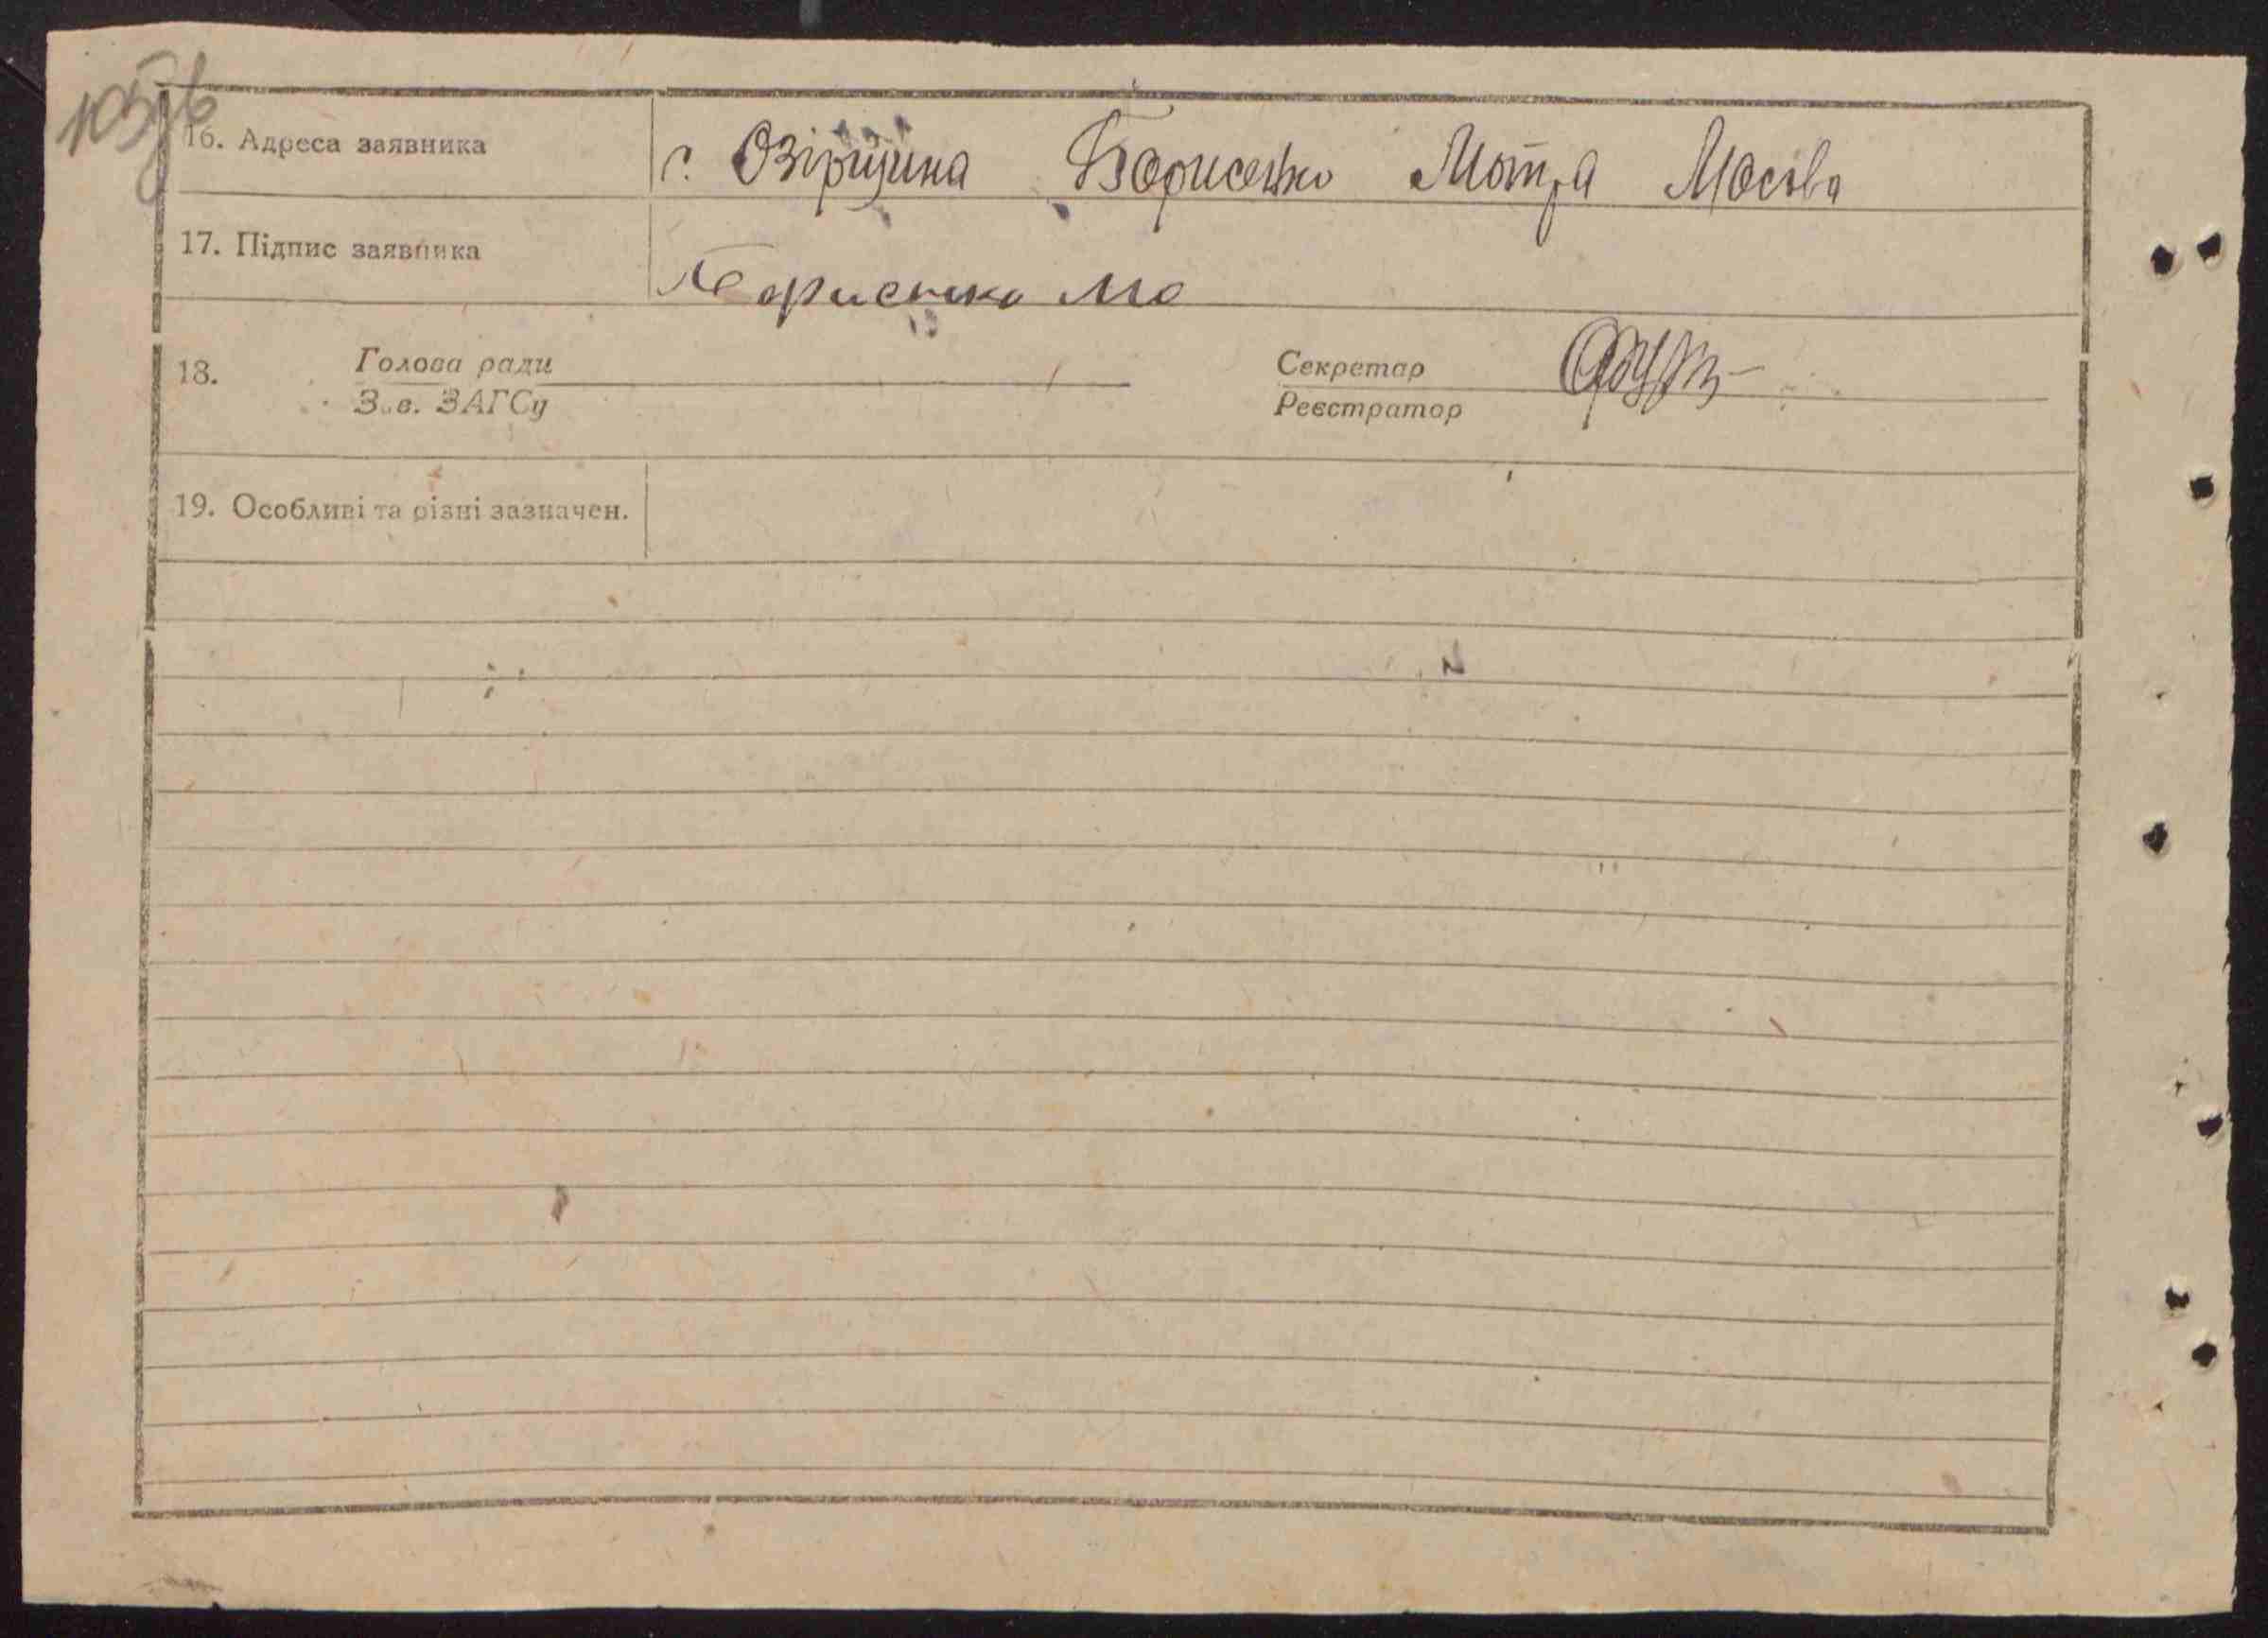 105 в
16. Адреса заявника с. Озірщина Борисенко Мотря Мосівн
17. Підпис заявника Борисенко Мо
18. Голова ради Секретар
Зав. ЗАГСу Реєстратор
19. Особливі та різні зазначен.